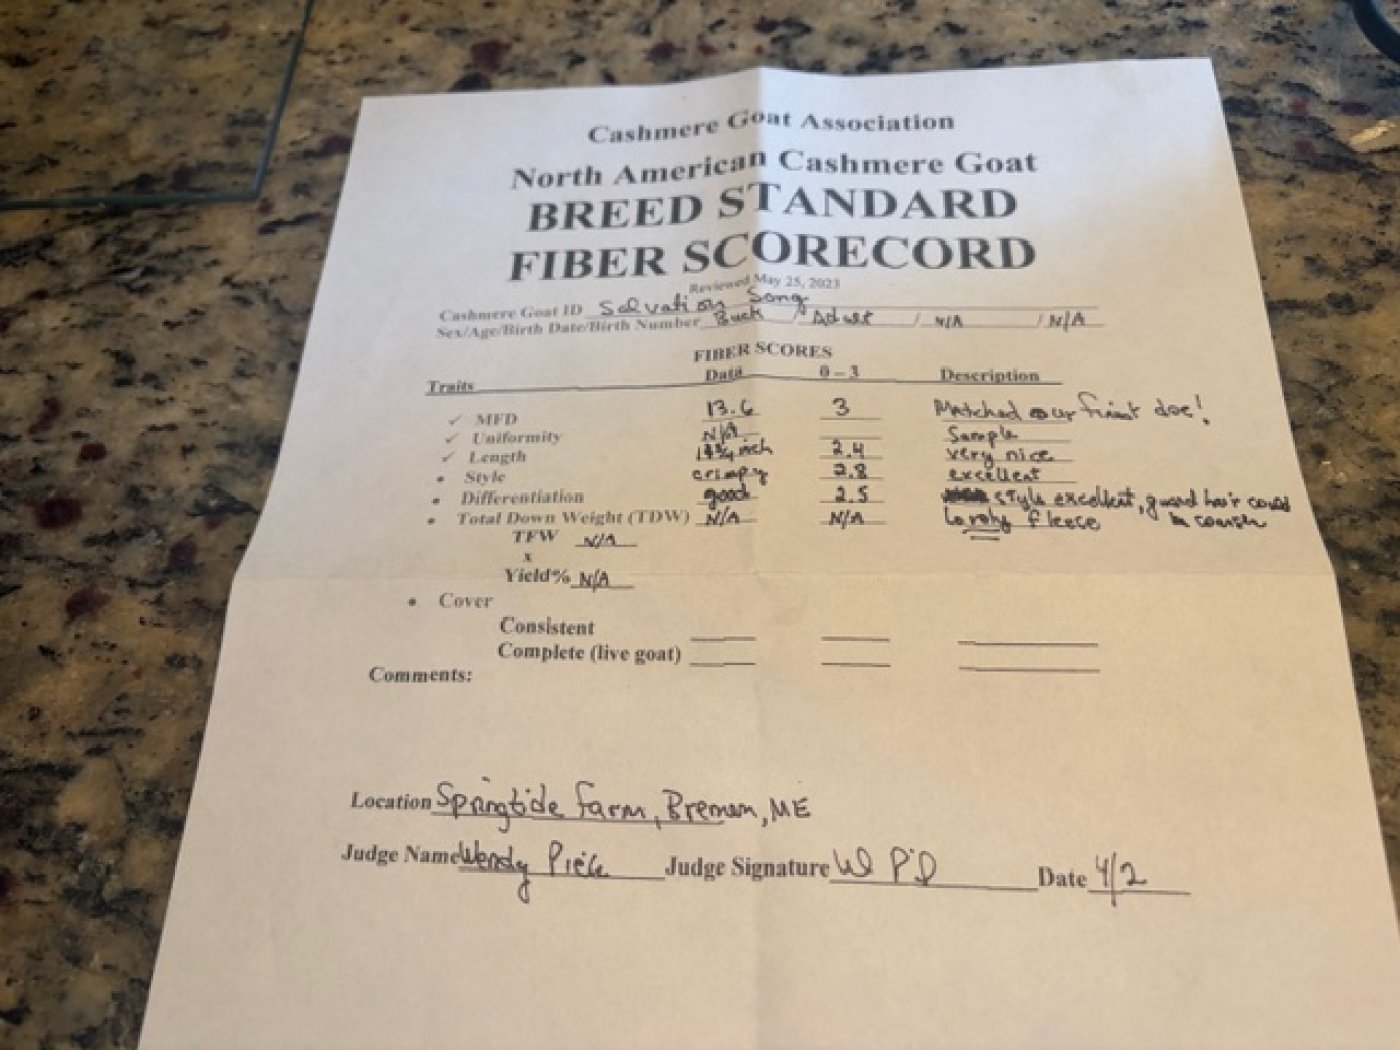 Cashmere Goat Association
North American Cashmere Goat
BREED STANDARD
FIBER SCORECORD
Reviewed May 25, 2023
Cashmere Goat ID Salvation Song
Sex/Age/Birth Date/Birth Number Buck / Adult / N/A / N/A
FIBER SCORES
Traits Data 0 – 3 Description
✓ MFD 13.6 3 Matched our finest doe!
✓ Uniformity N/A Sample
✓ Length 1 3/4 inch 2.4 very nice
• Style crimpy 2.8 excellent
• Differentiation good 2.5 style excellent, guard hair could
• Total Down Weight (TDW) N/A N/A Lovely fleece be coarser
TFW N/A
x
Yield% N/A
• Cover
Consistent
Complete (live goat)
Comments:
Location Springtide Farm, Bremen, ME
Judge Name Wendy Judge Signature Date 4/2